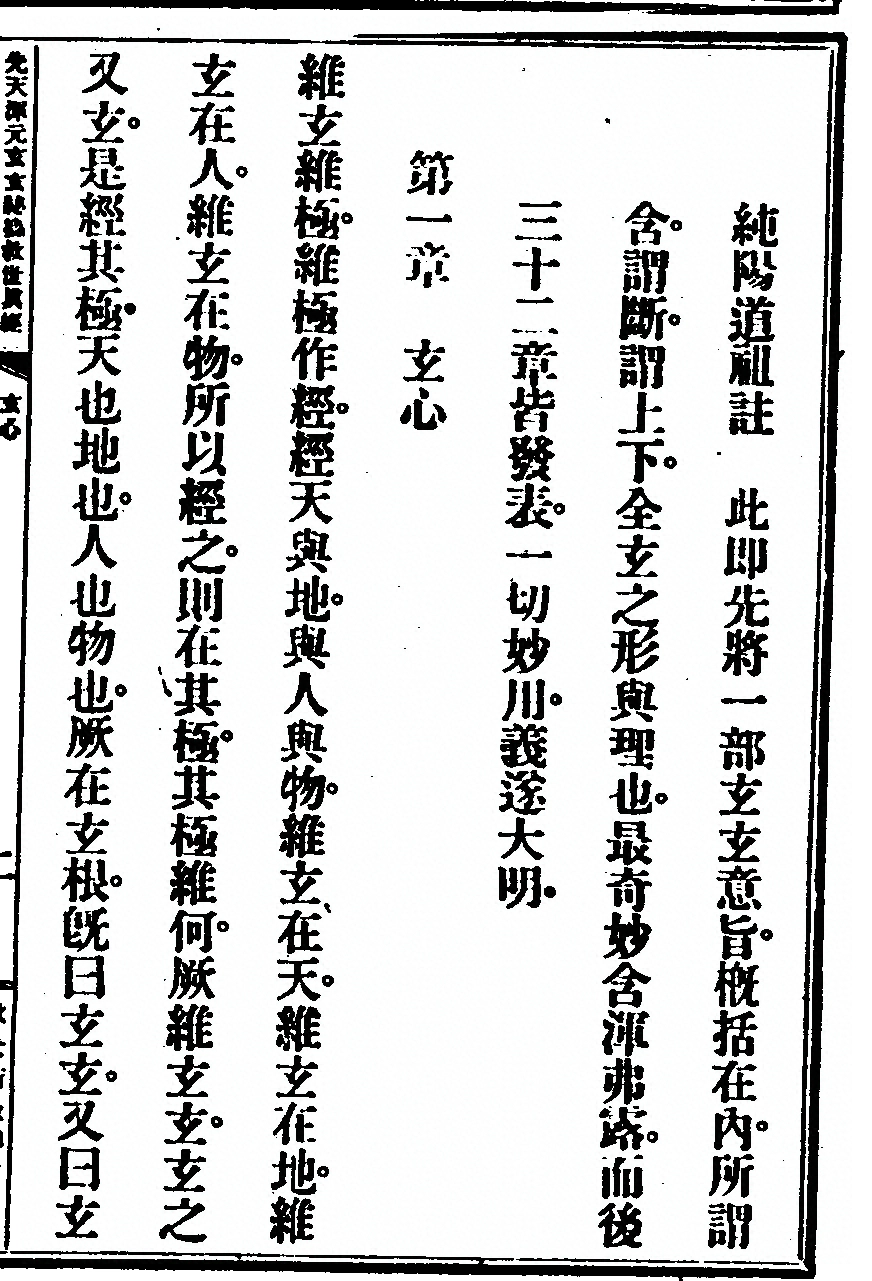 純陽道祖註　此即先將一部玄玄意旨。槪括在內。所謂
含。謂斷。謂上下。全玄之形與理也。最奇妙含渾弗露。而後
三十二章皆發表。一切妙用。義遂大明。
第一章　玄心
維玄維極。維極作經。經天與地。與人與物。維玄在天。維玄在地。維
玄在人。維玄在物。所以經之。則在其極。其極維何。厥維玄玄。玄之
又玄。是經其極。天也地也。人也物也。厥在玄根。旣曰玄玄。又曰玄
先天渾元玄玄祕籙救世眞經
玄心
二